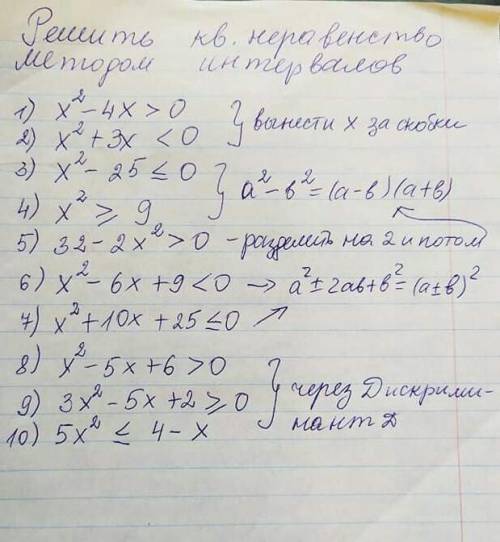 Решить кв. неравенство
методом интервалов
1) x² - 4x > 0
2) x² + 3x < 0 } вынести x за скобки
3) x² - 25 ≤ 0
4) x² ≥ 9 } a² - b² = (a-b)(a+b)
5) 32 - 2x² > 0 - разделить на 2 и потом
6) x² - 6x + 9 < 0 → a² ± 2ab + b² = (a±b)²
7) x² + 10x + 25 ≤ 0 ↗
8) x² - 5x + 6 > 0
9) 3x² - 5x + 2 ≥ 0 } через Дискрими-
10) 5x² ≤ 4 - x нант D